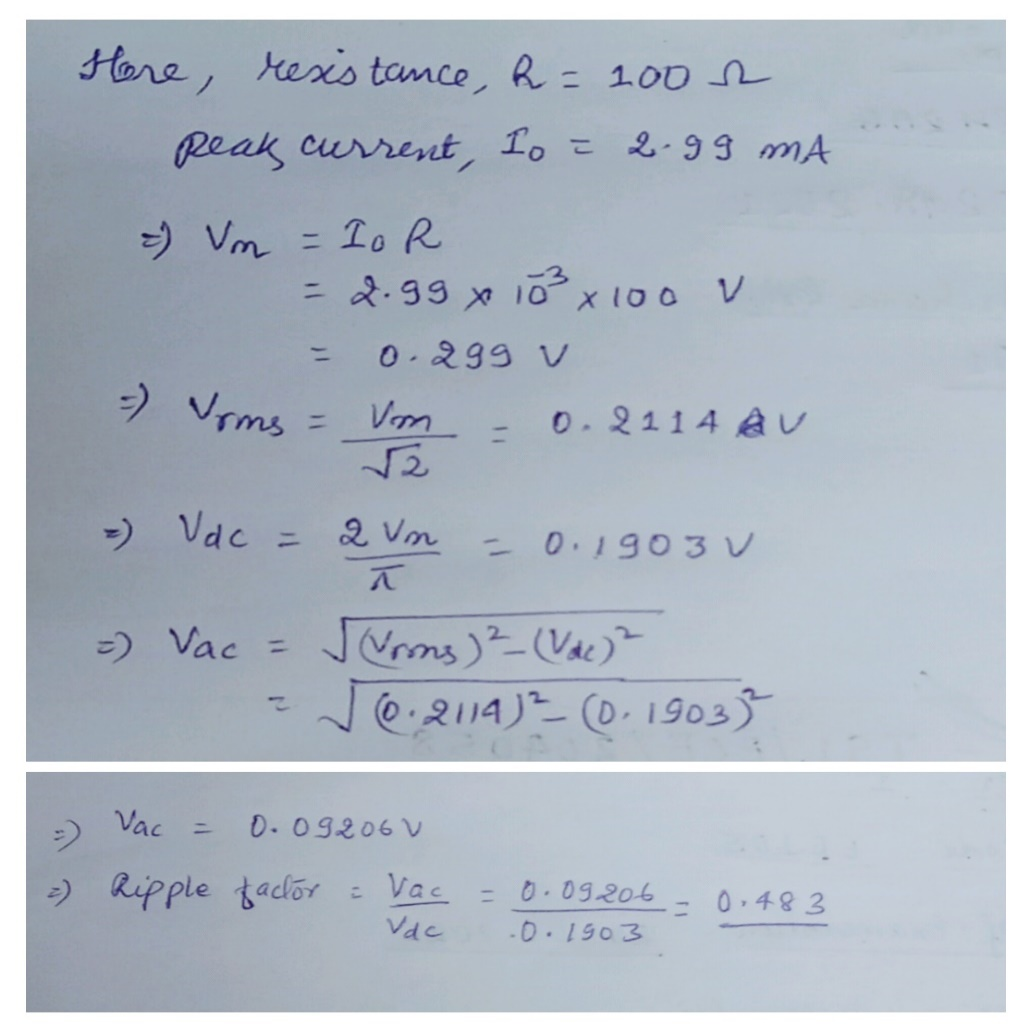 Here, resistance, R = 100 Ω
peak current, I₀ = 2.99 mA
=) Vm = I₀ R
= 2.99 x 10⁻³ x 100 V
= 0.299 V
=) Vrms = Vm / √2 = 0.2114 V
=) Vdc = 2 Vm / π = 0.1903 V
=) Vac = √((Vrms)² - (Vdc)²)
= √((0.2114)² - (0.1903)²)
=) Vac = 0.09206 V
=) Ripple factor = Vac / Vdc = 0.09206 / 0.1903 = 0.483